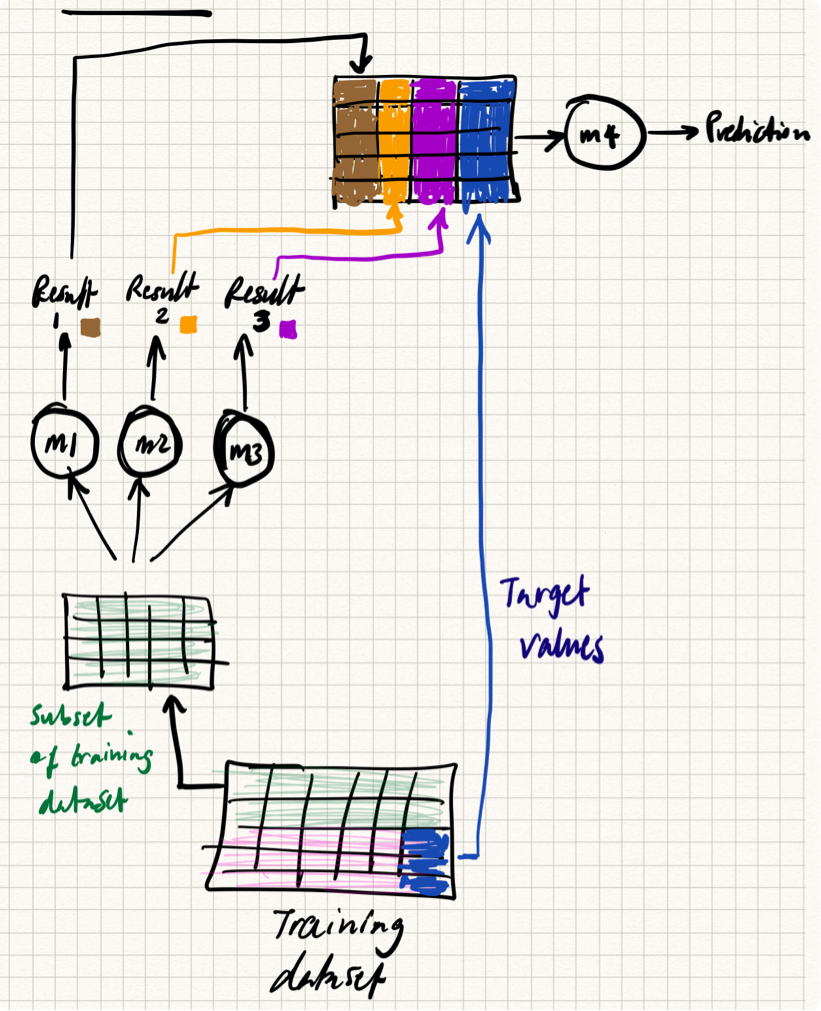 m4
Prediction
Result
1
Result
2
Result
3
m1
m2
m3
Target
values
Subset
of training
dataset
Training
dataset